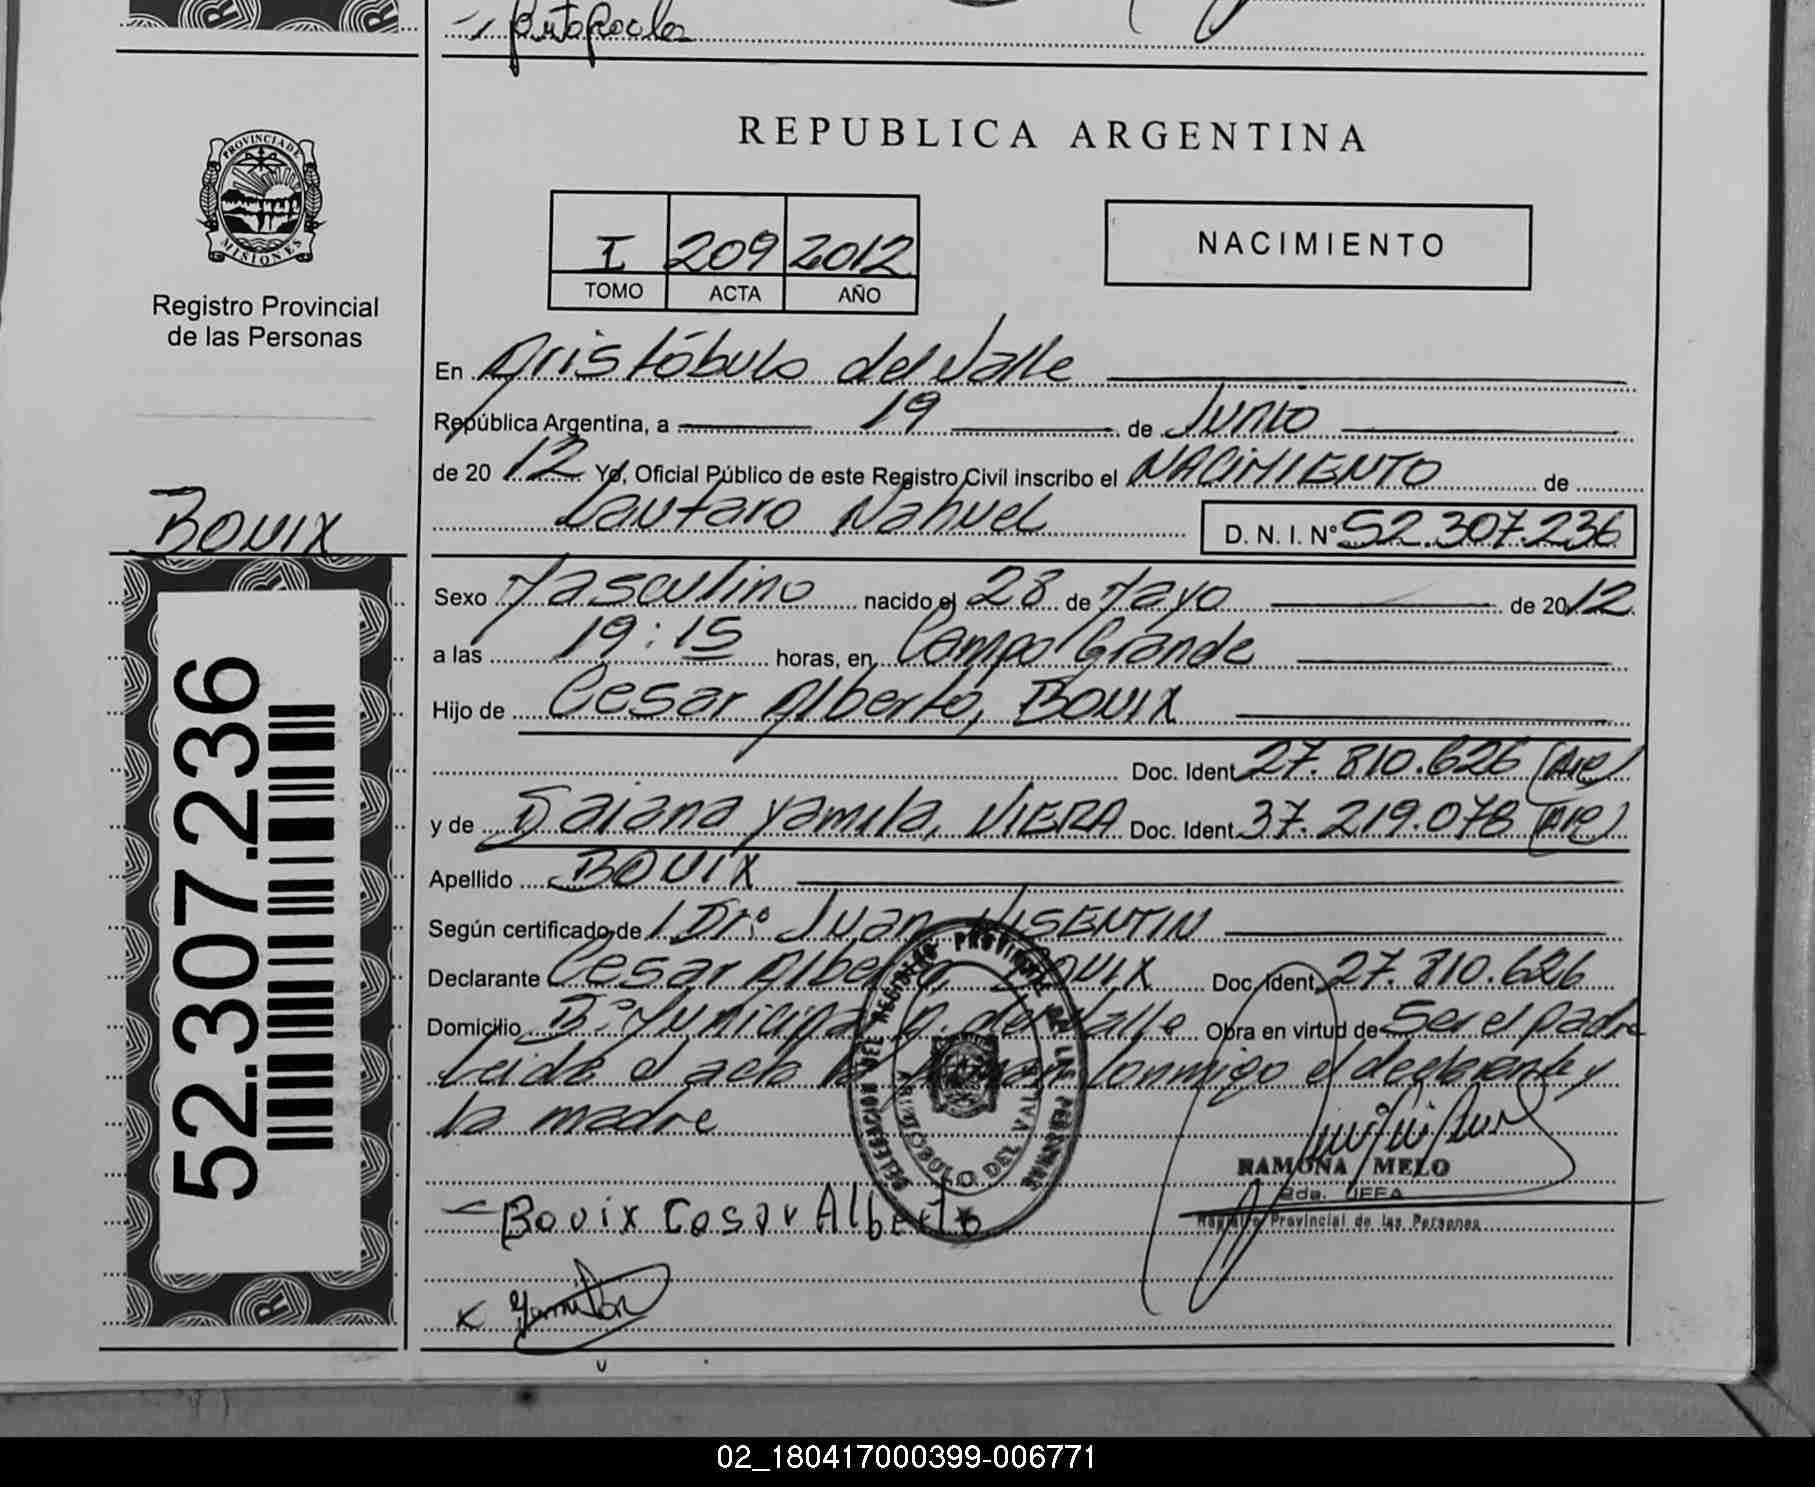 REPUBLICA ARGENTINA
PROVINCIA DE MISIONES
Registro Provincial
de las Personas
I 209 2012
TOMO ACTA AÑO
NACIMIENTO
En Aristóbulo del Valle
República Argentina, a 19 de Junio
de 2012 Yo, Oficial Público de este Registro Civil inscribo el NACIMIENTO de
Lautaro Nahuel D. N. I. Nº 52.307.236
BOUIX
Sexo Masculino nacido el 28 de Mayo de 2012
a las 19:15 horas, en Campo Grande
Hijo de Cesar Alberto, BOUIX
Doc. Ident. 27.810.626 (Arg)
y de Daiana Yamila, VIERA Doc. Ident. 37.219.078 (Arg)
Apellido BOUIX
Según certificado de / Dr: Juan VISENTIN
Declarante Cesar Alberto, BOUIX Doc. Ident. 27.810.626
Domicilio Bº Municipal A. del Valle Obra en virtud de Ser el padre
Leida el acta la firman conmigo el declarante y
la madre
52.307.236
DELEGACION DEL REGISTRO PROVINCIAL DE LAS PERSONAS
ARISTOBULO DEL VALLE
RAMONA MELO
2da. JEFA
Registro Provincial de las Personas
Bouix Cesar Alberto
02_180417000399-006771